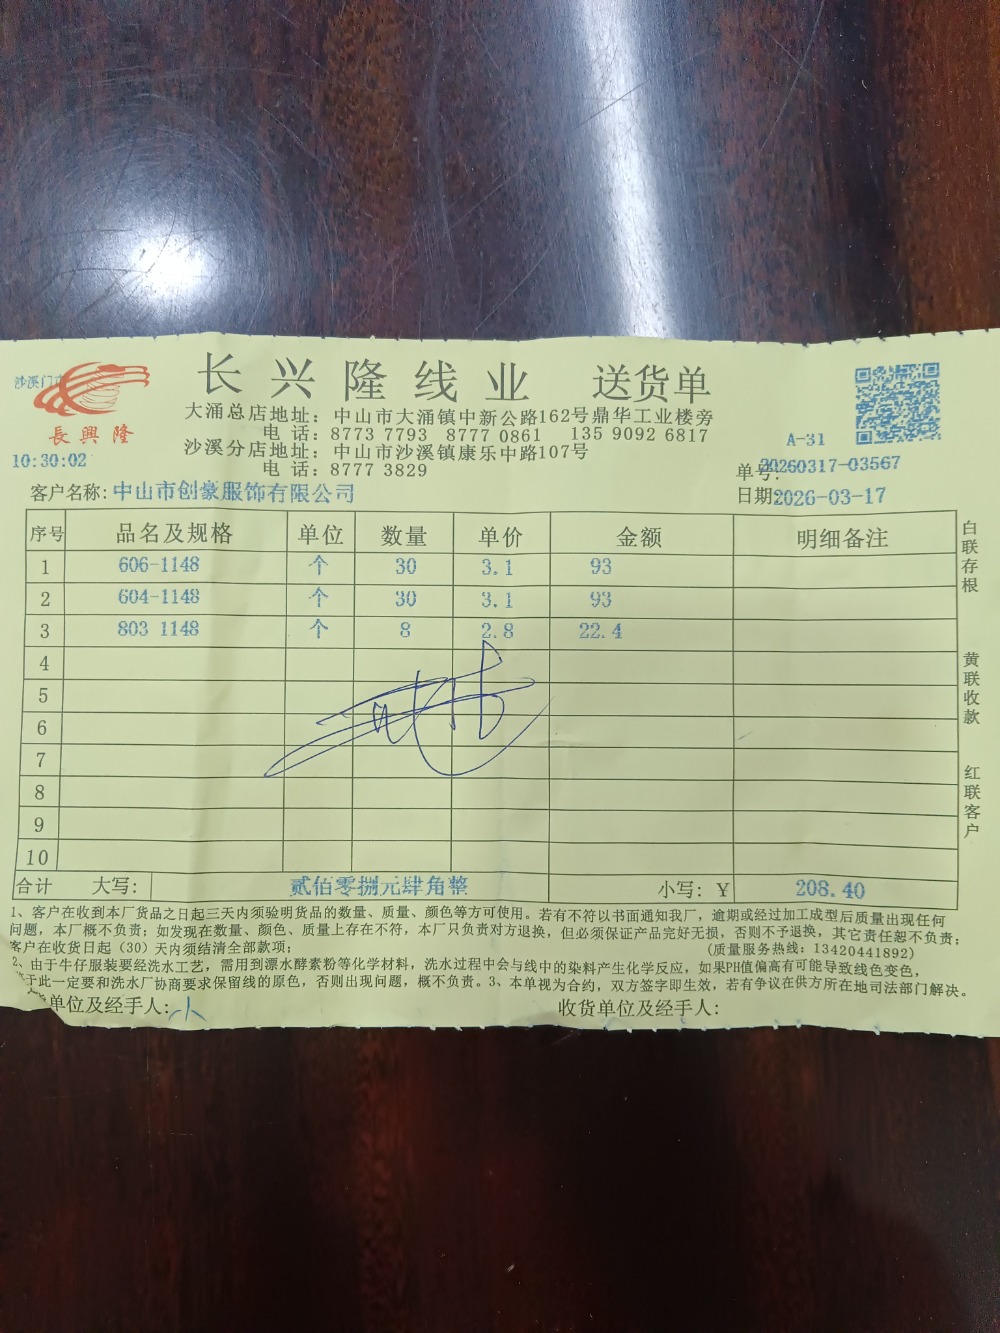 沙溪门
長興隆
10:30:02
长兴隆线业 送货单
大涌总店地址：中山市大涌镇中新公路162号鼎华工业楼旁
电 话：8773 7793 8777 0861 135 9092 6817
沙溪分店地址：中山市沙溪镇康乐中路107号
电 话：8777 3829
A-31
单号：20260317-03567
客户名称：中山市创豪服饰有限公司
日期2026-03-17
序号 品名及规格 单位 数量 单价 金额 明细备注
1 606-1148 个 30 3.1 93
2 604-1148 个 30 3.1 93
3 803 1148 个 8 2.8 22.4
4
5
6
7
8
9
10
合计 大写： 贰佰零捌元肆角整 小写：Y 208.40
白联存根
黄联收款
红联客户
1、客户在收到本厂货品之日起三天内须验明货品的数量、质量、颜色等方可使用。若有不符以书面通知我厂，逾期或经过加工成型后质量出现任何
问题，本厂概不负责；如发现在数量、颜色、质量上存在不符，本厂只负责对方退换，但必须保证产品完好无损，否则不予退换，其它责任恕不负责；
客户在收货日起（30）天内须结清全部款项； (质量服务热线：13420441892)
2、由于牛仔服装要经洗水工艺，需用到漂水酵素粉等化学材料，洗水过程中会与线中的染料产生化学反应，如果PH值偏高有可能导致线色变色，
于此一定要和洗水厂协商要求保留线的原色，否则出现问题，概不负责。3、本单视为合约，双方签字即生效，若有争议在供方所在地司法部门解决。
单位及经手人： 收货单位及经手人：